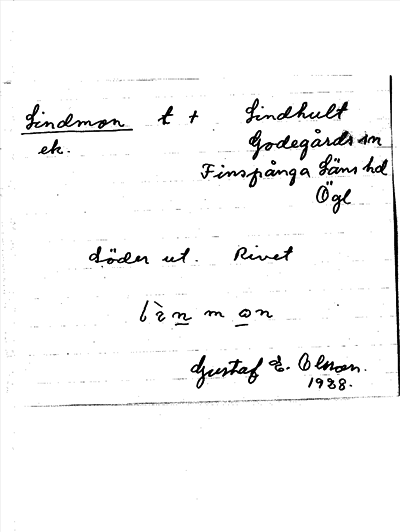 Lindmon t + Lindhult
ek. Godegårds sn
Finspånga Läns hd
Ögl
Söder ut. Rivet
Gustaf E. Olsson.
1928.